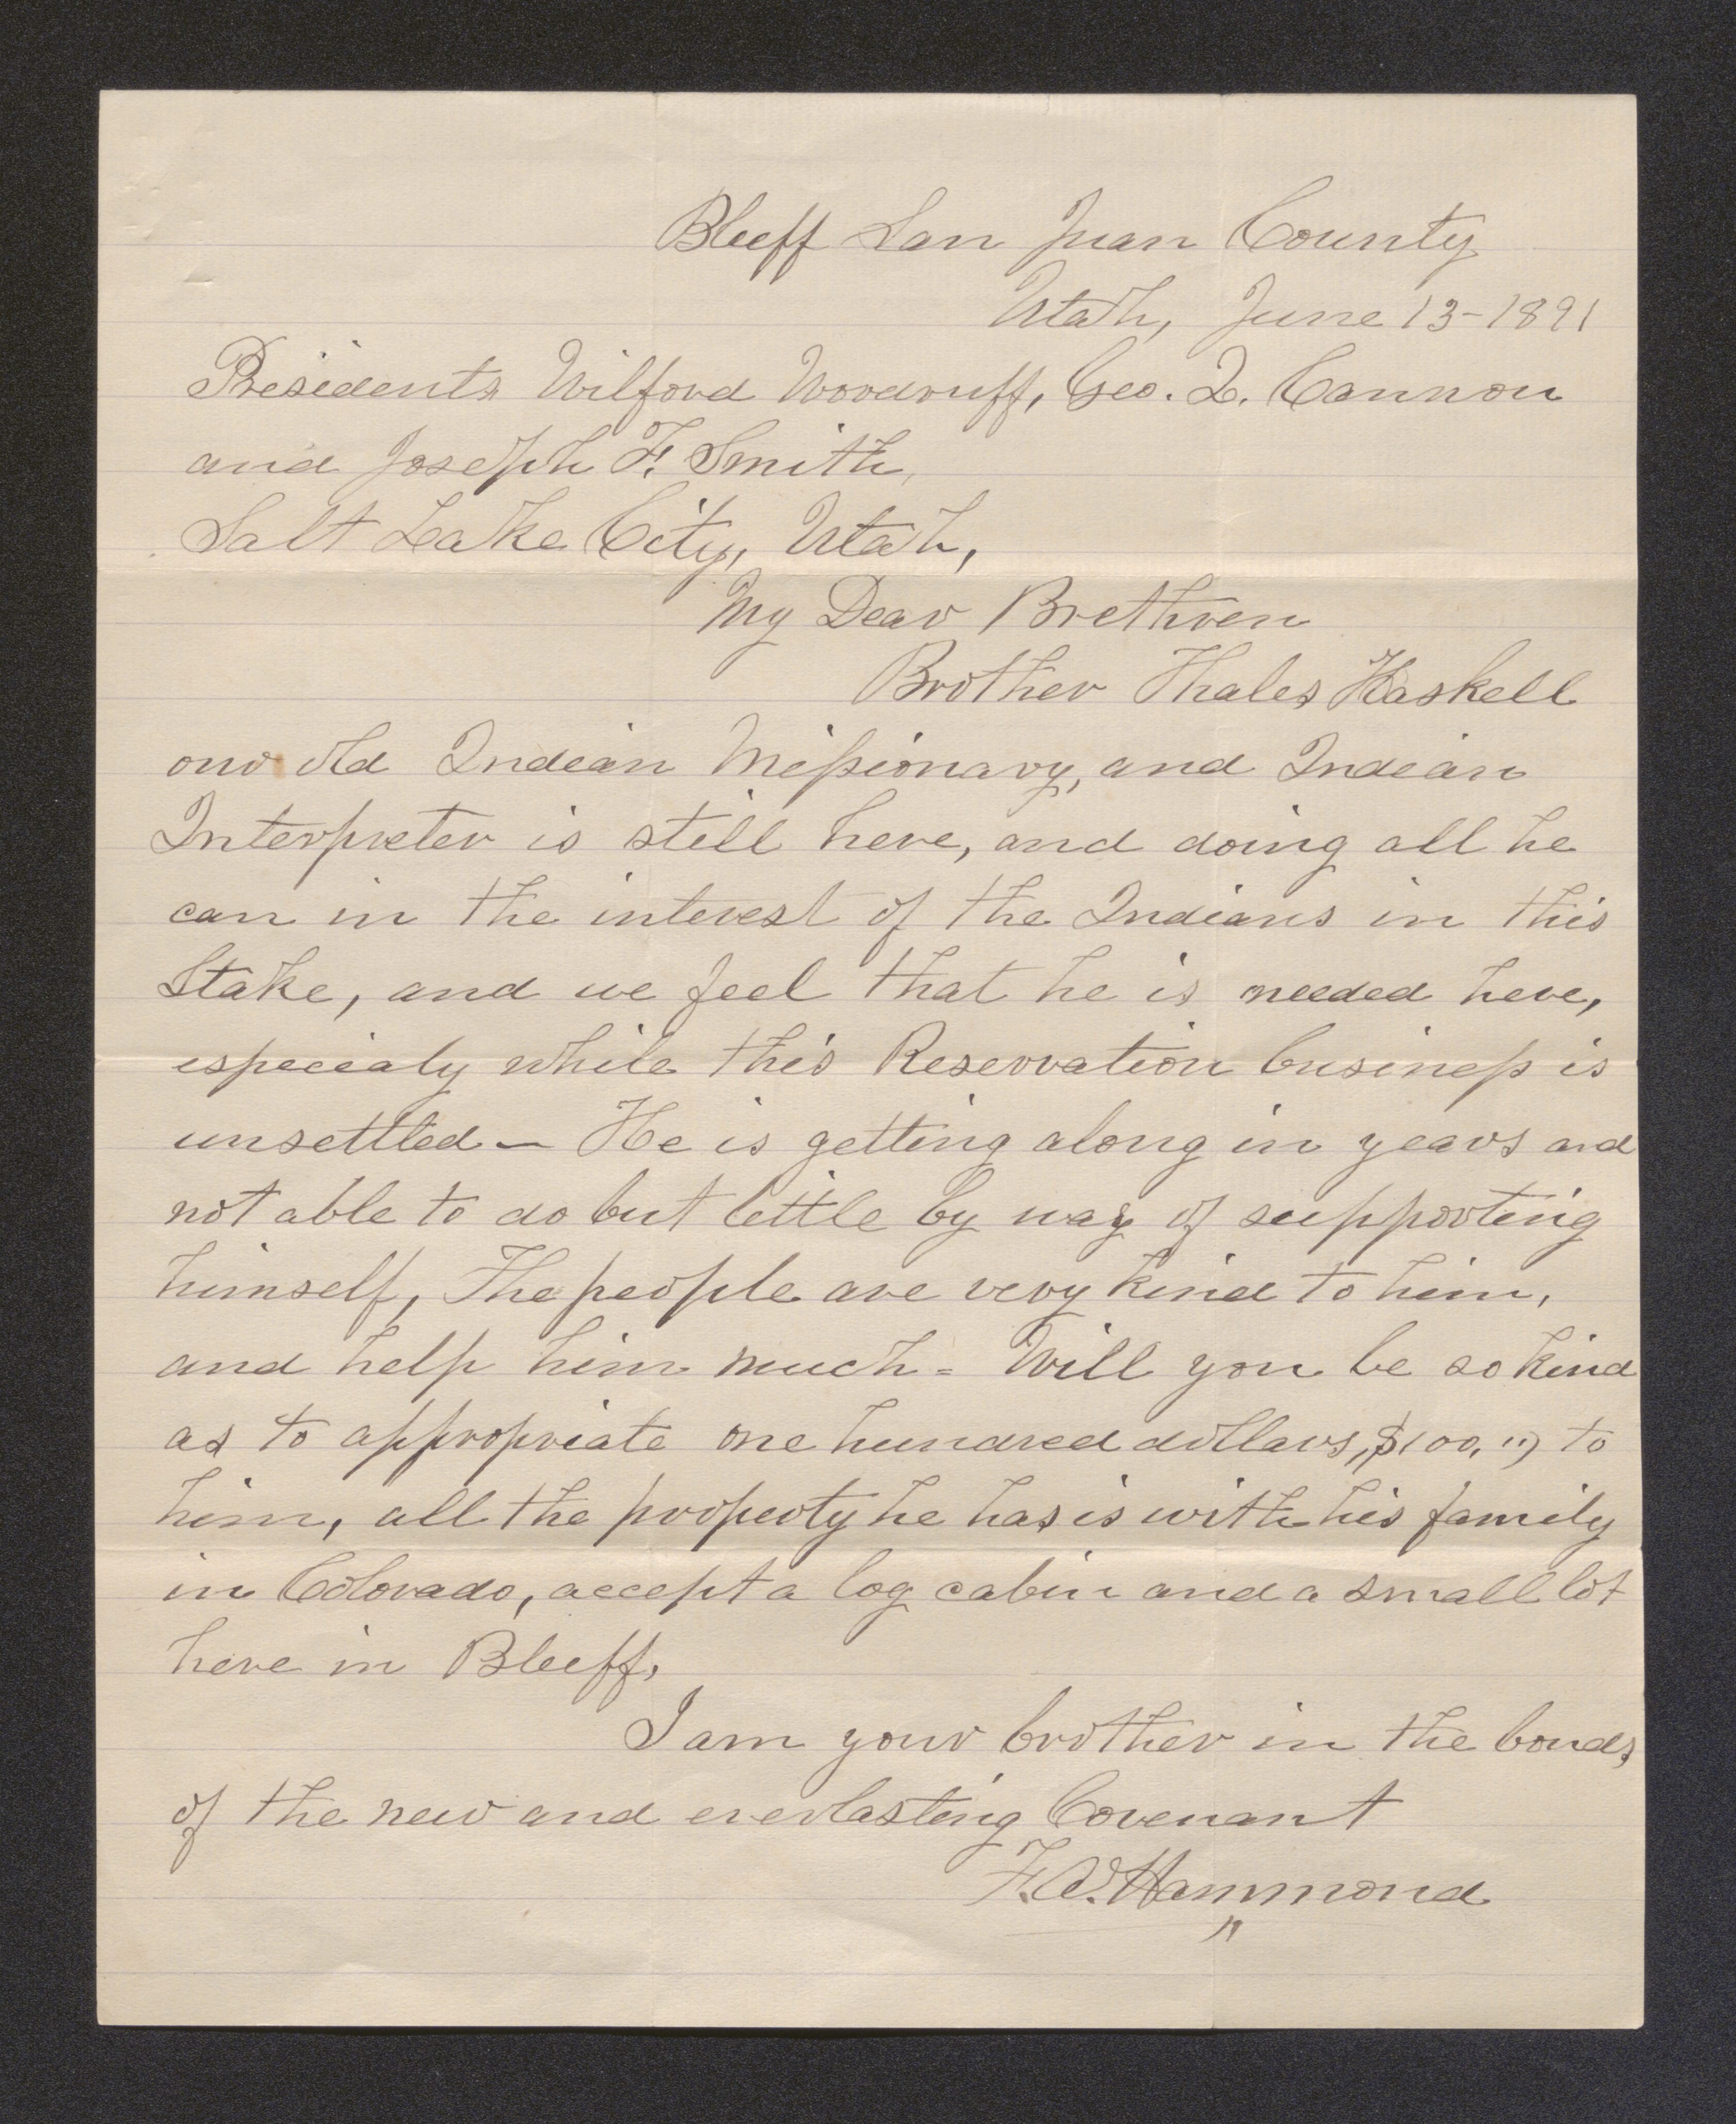 Bluff San Juan County
Utah, June 13-1891
Presidents Wilford Woodruff, Geo. Q. Cannon
and Joseph F. Smith,
Salt Lake City, Utah,
My Dear Brethren
Brother Thales Haskell
our old Indian Missionary, and Indian
Interpreter is still here, and doing all he
can in the interest of the Indians in this
Stake, and we feel that he is needed here,
especialy while this Reservation business is
unsettled - He is getting along in years and
not able to do but little by way of supporting
himself, The people are very kind to him,
and help him much = Will you be so kind
as to appropriate one hundred dollars, $100, ") to
him, all the property he has is with his family
in Colorado, accept a log cabin and a small lot
here in Bluff,
I am your brother in the bonds,
of the new and everlasting Covenant
F. A. Hammond